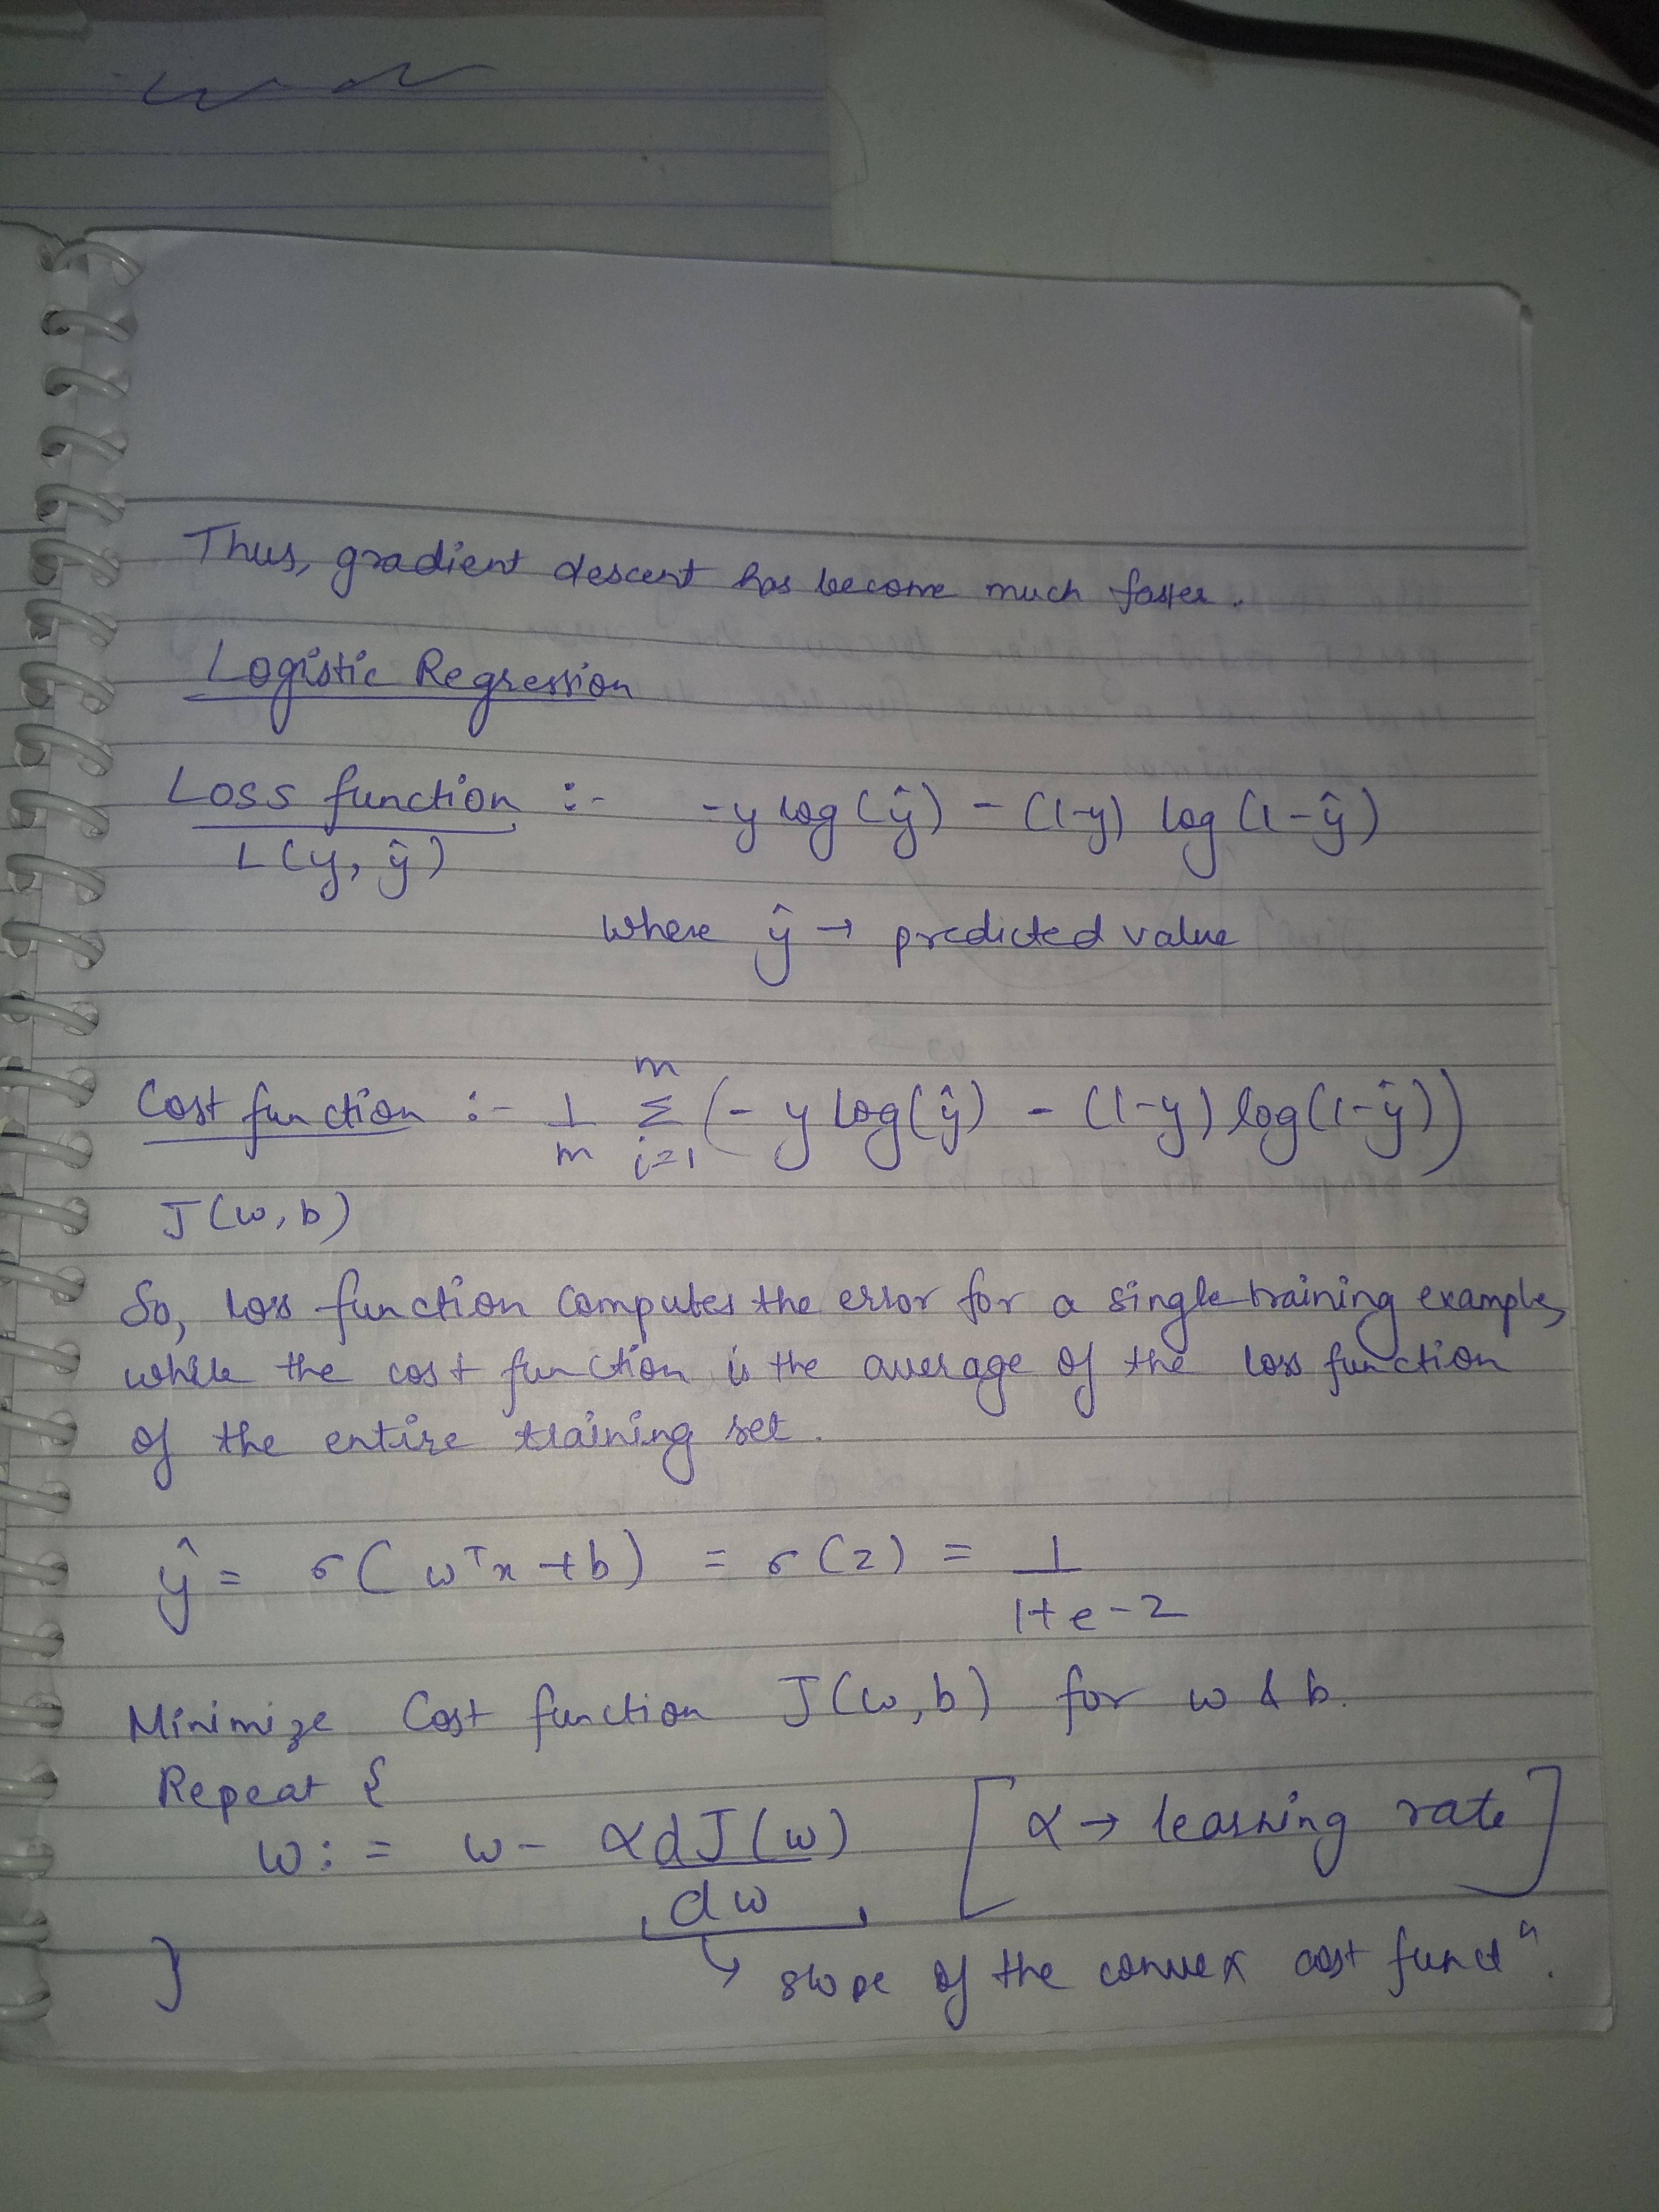 Thus, gradient descent has become much faster.
Logistic Regression
Loss function :- -y log(ŷ) - (1-y) log(1-ŷ)
L(y, ŷ)
where ŷ → predicted value
Cost function :- 1/m Σ_{i=1}^{m} (- y log(ŷ) - (1-y) log(1-ŷ))
J(w, b)
So, loss function computes the error for a single training example,
while the cost function is the average of the loss function
of the entire training set.
ŷ = σ(wᵀx + b) = σ(z) = 1/(1+e-z)
Minimize Cost function J(w, b) for w & b.
Repeat {
w := w - α dJ(w)/dw [α → learning rate]
} ↳ slope of the convex cost functⁿ.